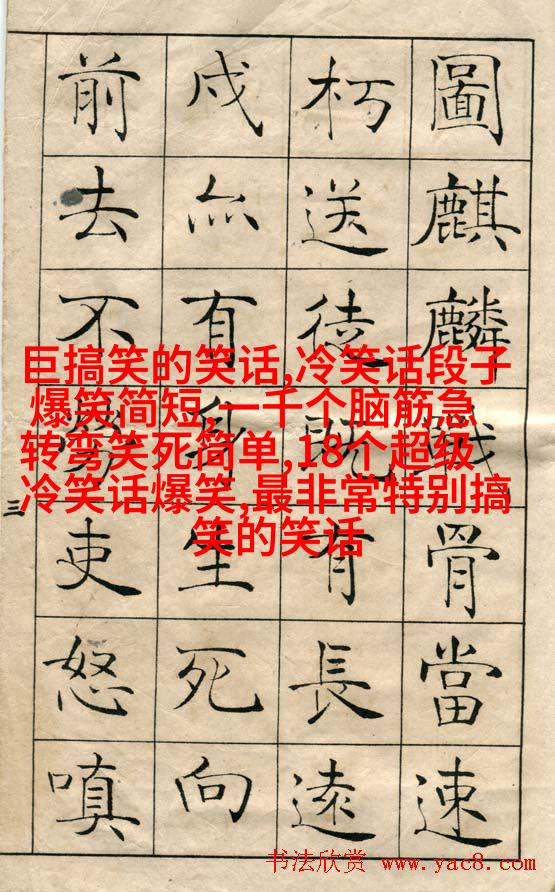 圖麒麟戰骨當速
朽送徒既有長遠
戍亦有身生死向
前去不勞吏怒嗔
三
巨搞笑的笑话,冷笑话段子
爆笑简短,一千个脑筋急
转弯笑死简单,18个超级
冷笑话爆笑,最非常特别搞
笑的笑话
书法欣赏 www.yac8.com